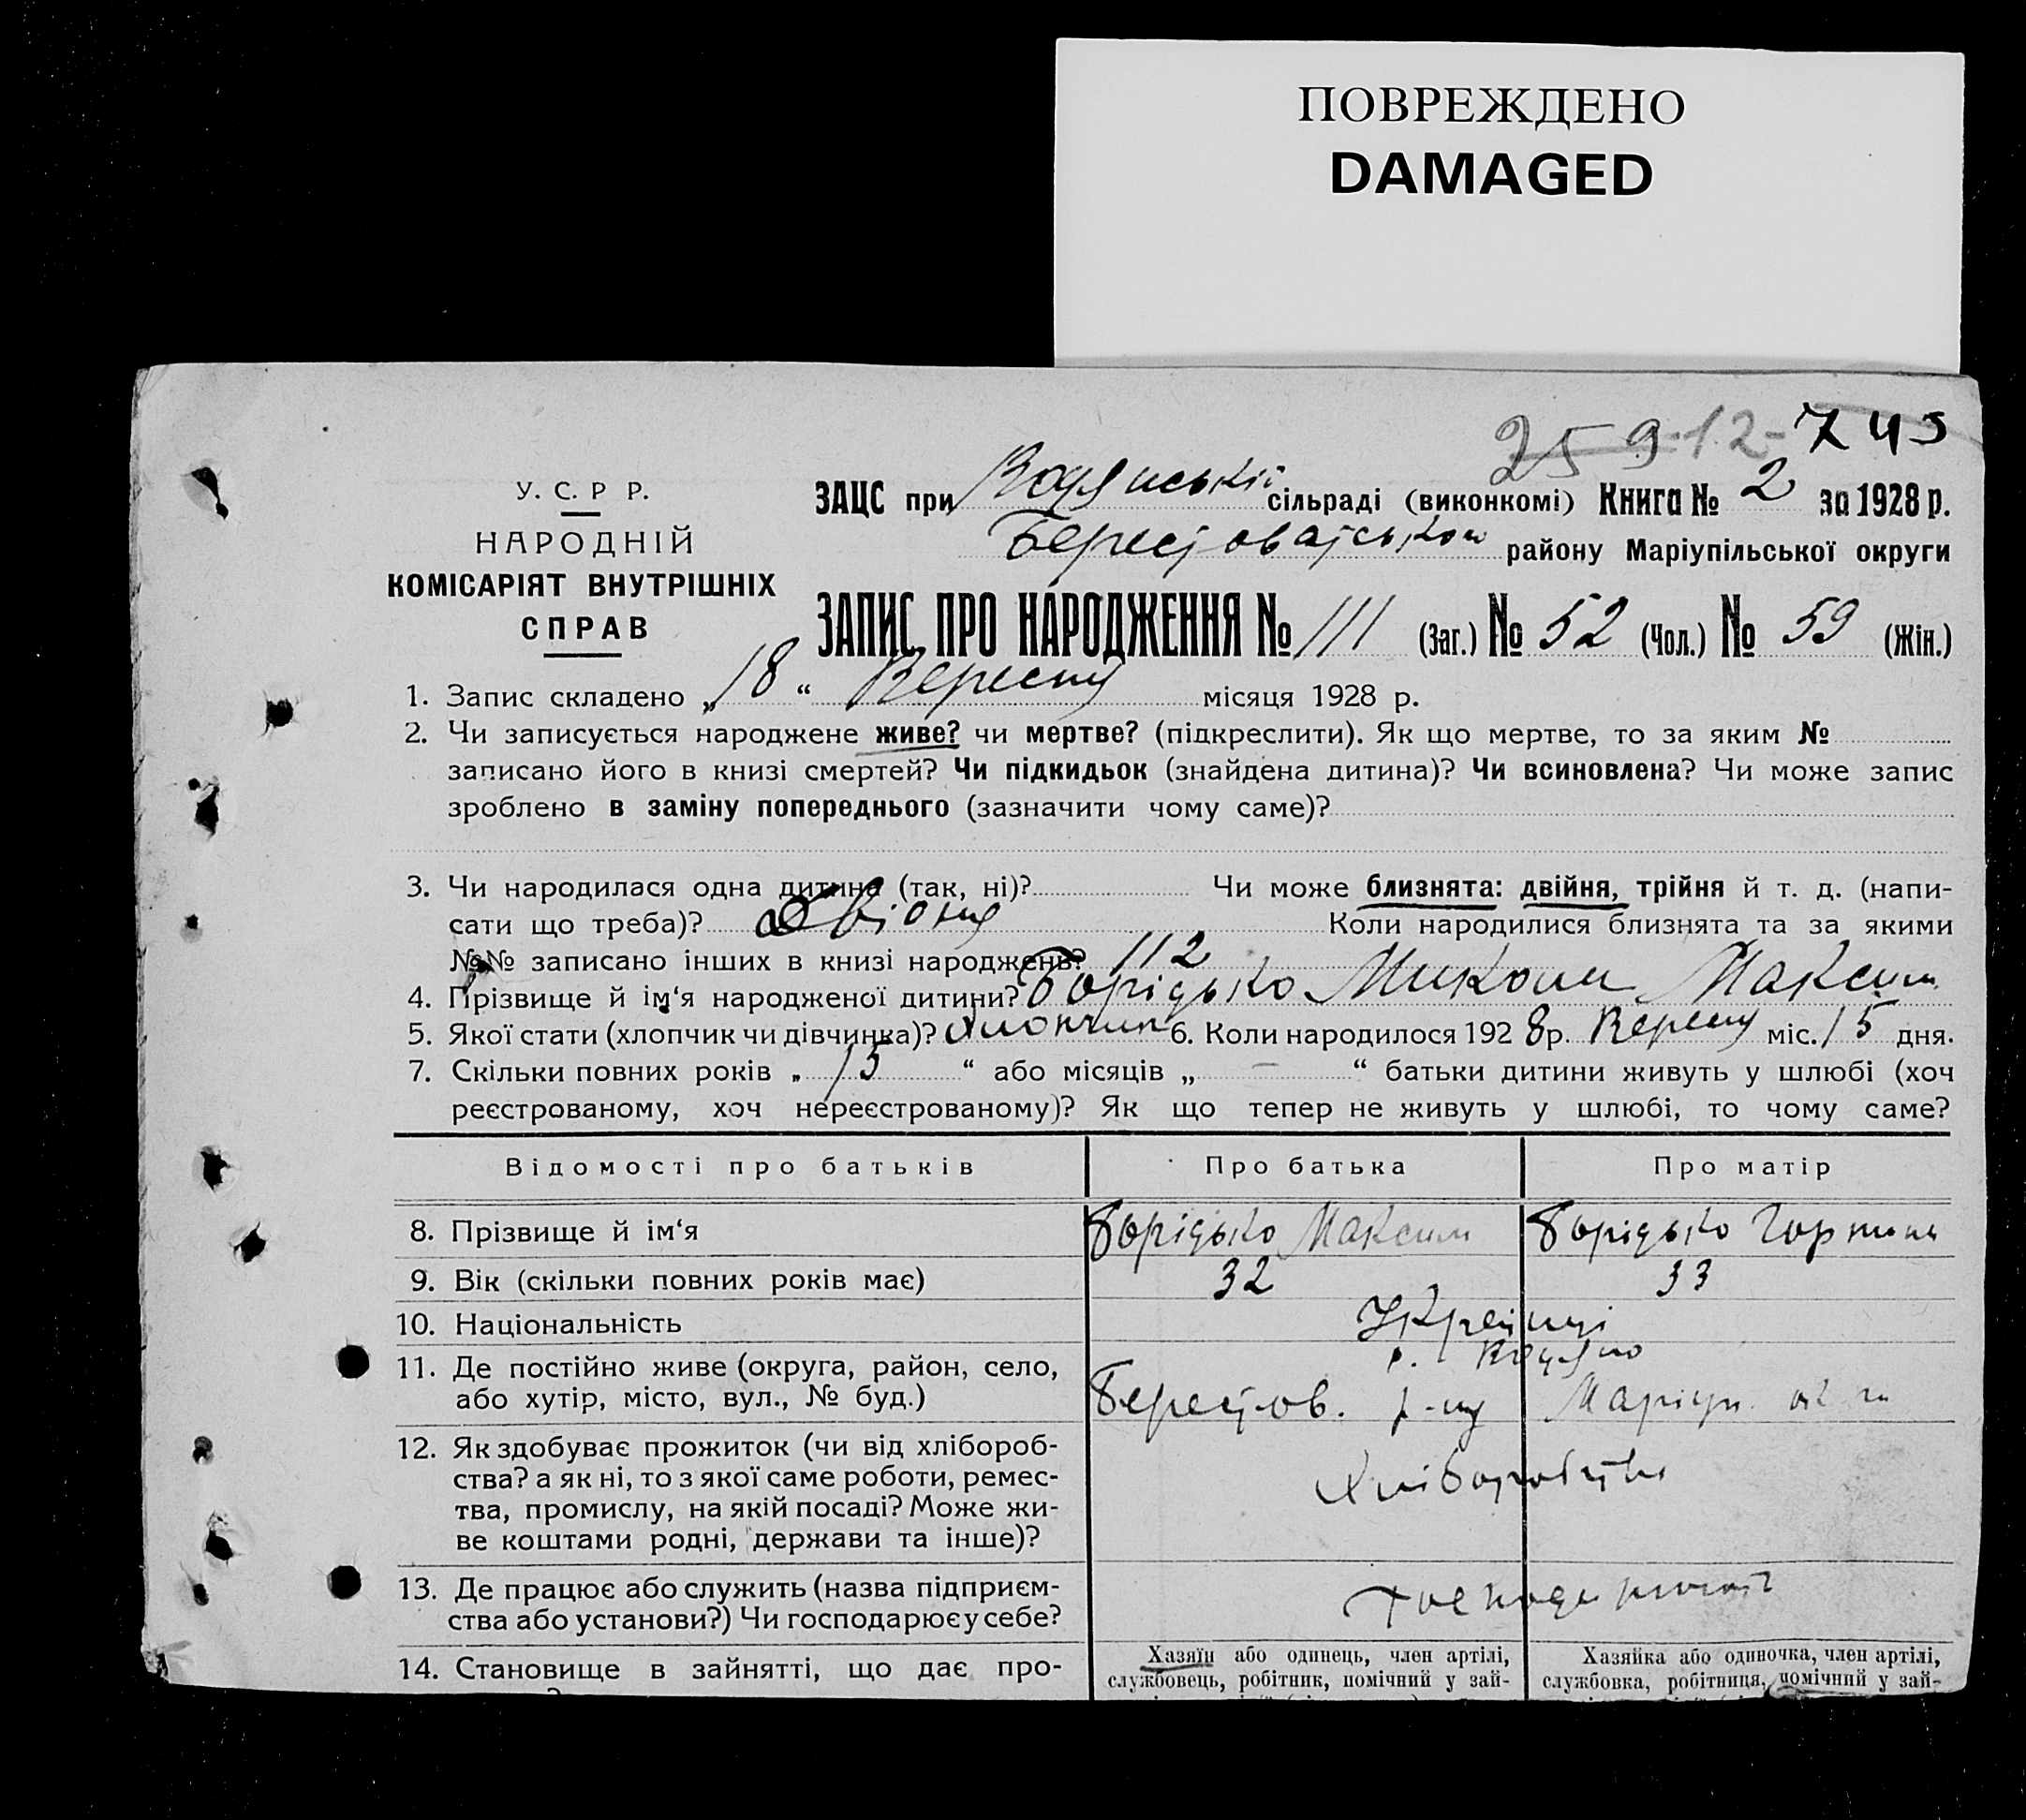 ПОВРЕЖДЕНО
DAMAGED
25 9-12- 745
У. С. Р Р.
НАРОДНІЙ
КОМІСАРІЯТ ВНУТРІШНІХ
СПРАВ
ЗАЦС при Водянській сільраді (виконкомі) Книга № 2 за 1928 р.
району Маріупільської округи
ЗАПИС ПРО НАРОДЖЕННЯ № 111 (Заг.) № 52 (Чол.) № 59 (Жін.)
1. Запис складено „ 18 “ Вересня місяця 1928 р.
2. Чи записується народжене живе? чи мертве? (підкреслити). Як що мертве, то за яким №
записано його в книзі смертей? Чи підкидьок (знайдена дитина)? Чи всиновлена? Чи може запис
зроблено в заміну попереднього (зазначити чому саме)?
3. Чи народилася одна дитина (так, ні)? Чи може близнята: двійня, трійня й т. д. (напи-
сати що треба)? Коли народилися близнята та за якими
№№ записано інших в книзі народжень? 112
4. Прізвище й ім‘я народженої дитини? Борідько Микола Максим
5. Якої стати (хлопчик чи дівчинка)? Хлопчик 6. Коли народилося 192 8 р. Вересня міс. 15 дня.
7. Скільки повних років „ 15 “ або місяців „ — “ батьки дитини живуть у шлюбі (хоч
реєстрованому, хоч нереєстрованому)? Як що тепер не живуть у шлюбі, то чому саме?
Відомості про батьків Про батька Про матір
8. Прізвище й ім‘я Борідько Максим Борідько Горпина
9. Вік (скільки повних років має) 32 33
10. Національність Українці
11. Де постійно живе (округа, район, село, с. Водяно
або хутір, місто, вул., № буд.) Берестов. р-ну Маріуп.
12. Як здобуває прожиток (чи від хлібороб-
ства? а як ні, то з якої саме роботи, ремес-
тва, промислу, на якій посаді? Може жи-
ве коштами родні, держави та інше)?
Хліборобство
13. Де працює або служить (назва підприєм-
ства або установи?) Чи господарює у себе?
14. Становище в зайнятті, що дає про-
Хазяїн або одинець, член артілі,
службовець, робітник, помічний у зай-
Хазяйка або одиночка, член артілі,
службовка, робітниця, помічний у зай-